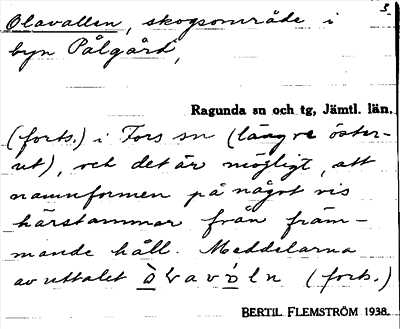 3.
Olavallen, skogsområde i
byn Pålgård,
Ragunda sn och tg, Jämtl. län.
(forts.) i Fors sn (längre öster-
ut), och det är möjligt, att
namnformen på något vis
härstammar från främ-
mande håll. Meddelarna
av uttalet (forts.)
BERTIL FLEMSTRÖM 1938.